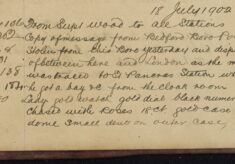 18 July 1902
From Supt wood to all Stations
Copy of message from Bedford Boro Pol
Stolen from this Boro yesterday and disp
of between here and London as the m
was traced to St Pancras Station wh
138 he got a bag &c from the cloak room
Lady gold watch gold dial black numer
chased with Roses 18 ct gold case
dome Small dent on outer case,